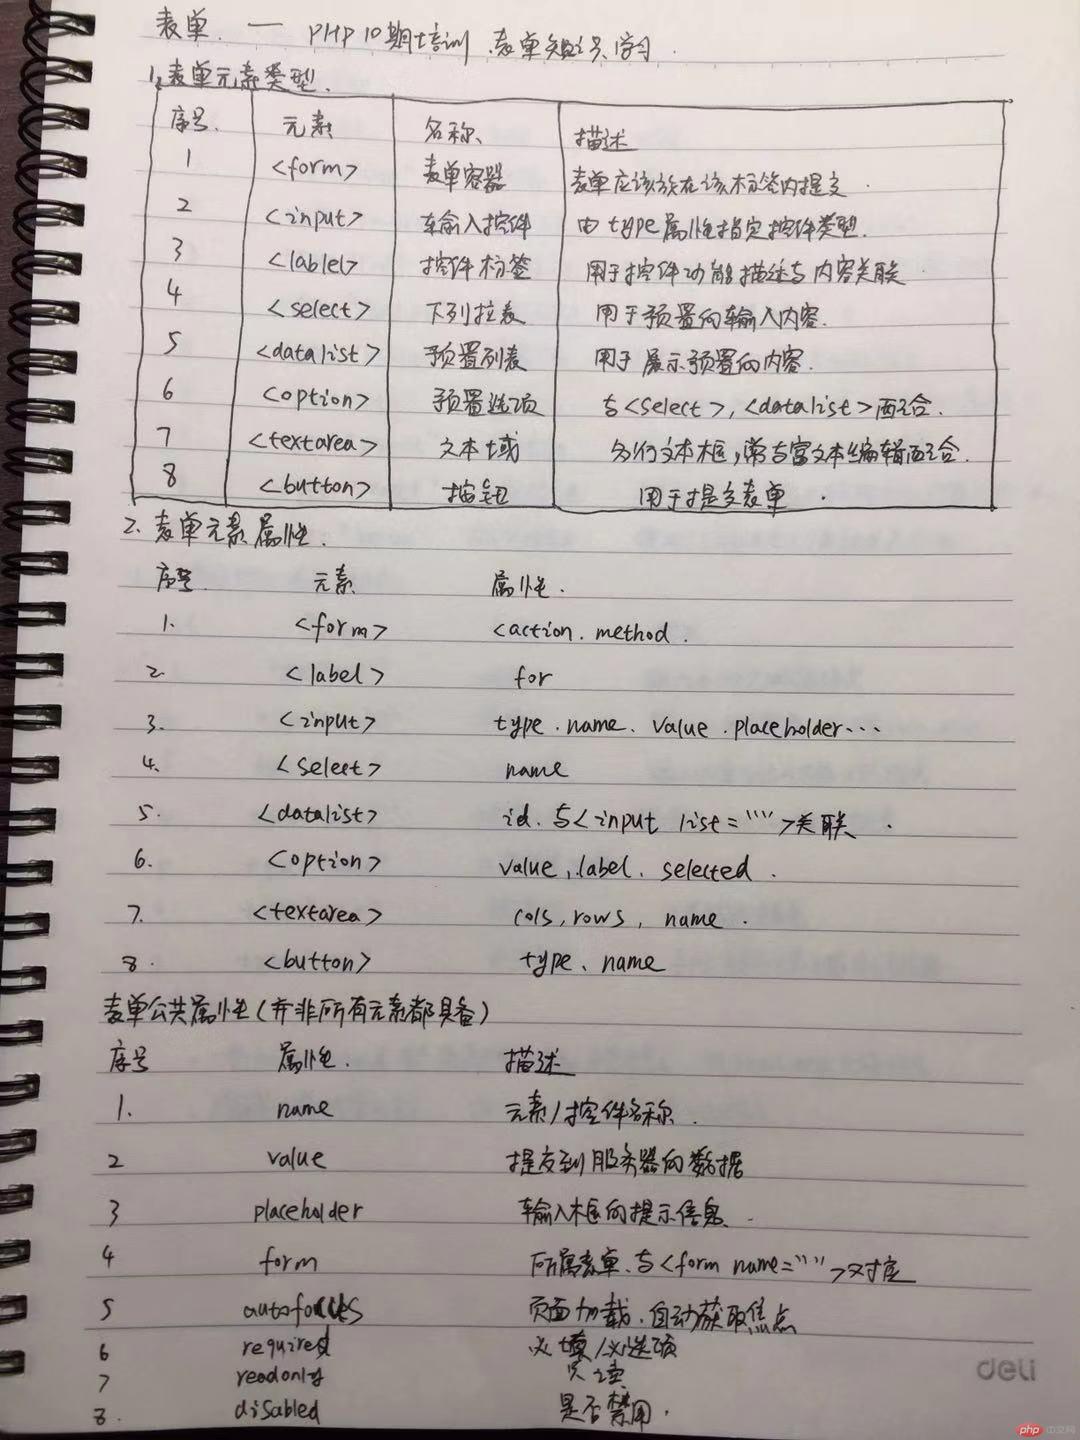 表单. — PHP10期培训.表单知识学习.
1.表单元素类型.
序号. 元素 名称、 描述
1 <form> 表单容器 表单应该放在该标签内提交.
2 <input> 输入控件 由type属性指定控件类型.
3 <lablel> 控件标签 用于控件功能描述与内容关联
4 <select> 下列拉表 用于预置的输入内容.
5 <datalist> 预置列表 用于展示预置的内容.
6 <option> 预置选项 与<select>,<datalist>配合.
7 <textarea> 文本域 多行文本框,常与富文本编辑配合.
8 <button> 按钮 用于提交表单.
2.表单元素属性.
序号. 元素 属性.
1. <form> <action.method.
2. <label> for
3. <input> type.name.value.placeholder...
4. <select> name
5. <datalist> id.与<input list="">关联.
6. <option> value,label.selected.
7. <textarea> cols,rows,name.
8. <button> type、name
表单公共属性(并非所有元素都具备)
序号 属性. 描述
1. name 元素/控件名称.
2 value 提交到服务器的数据
3 placeholder 输入框的提示信息.
4 form 所属表单.与<form name="">对应
5 autofocus 页面加载.自动获取焦点
6 required 必填/必选项
7 readonly 只读
8. disabled 是否禁用.
deli
php 中文网